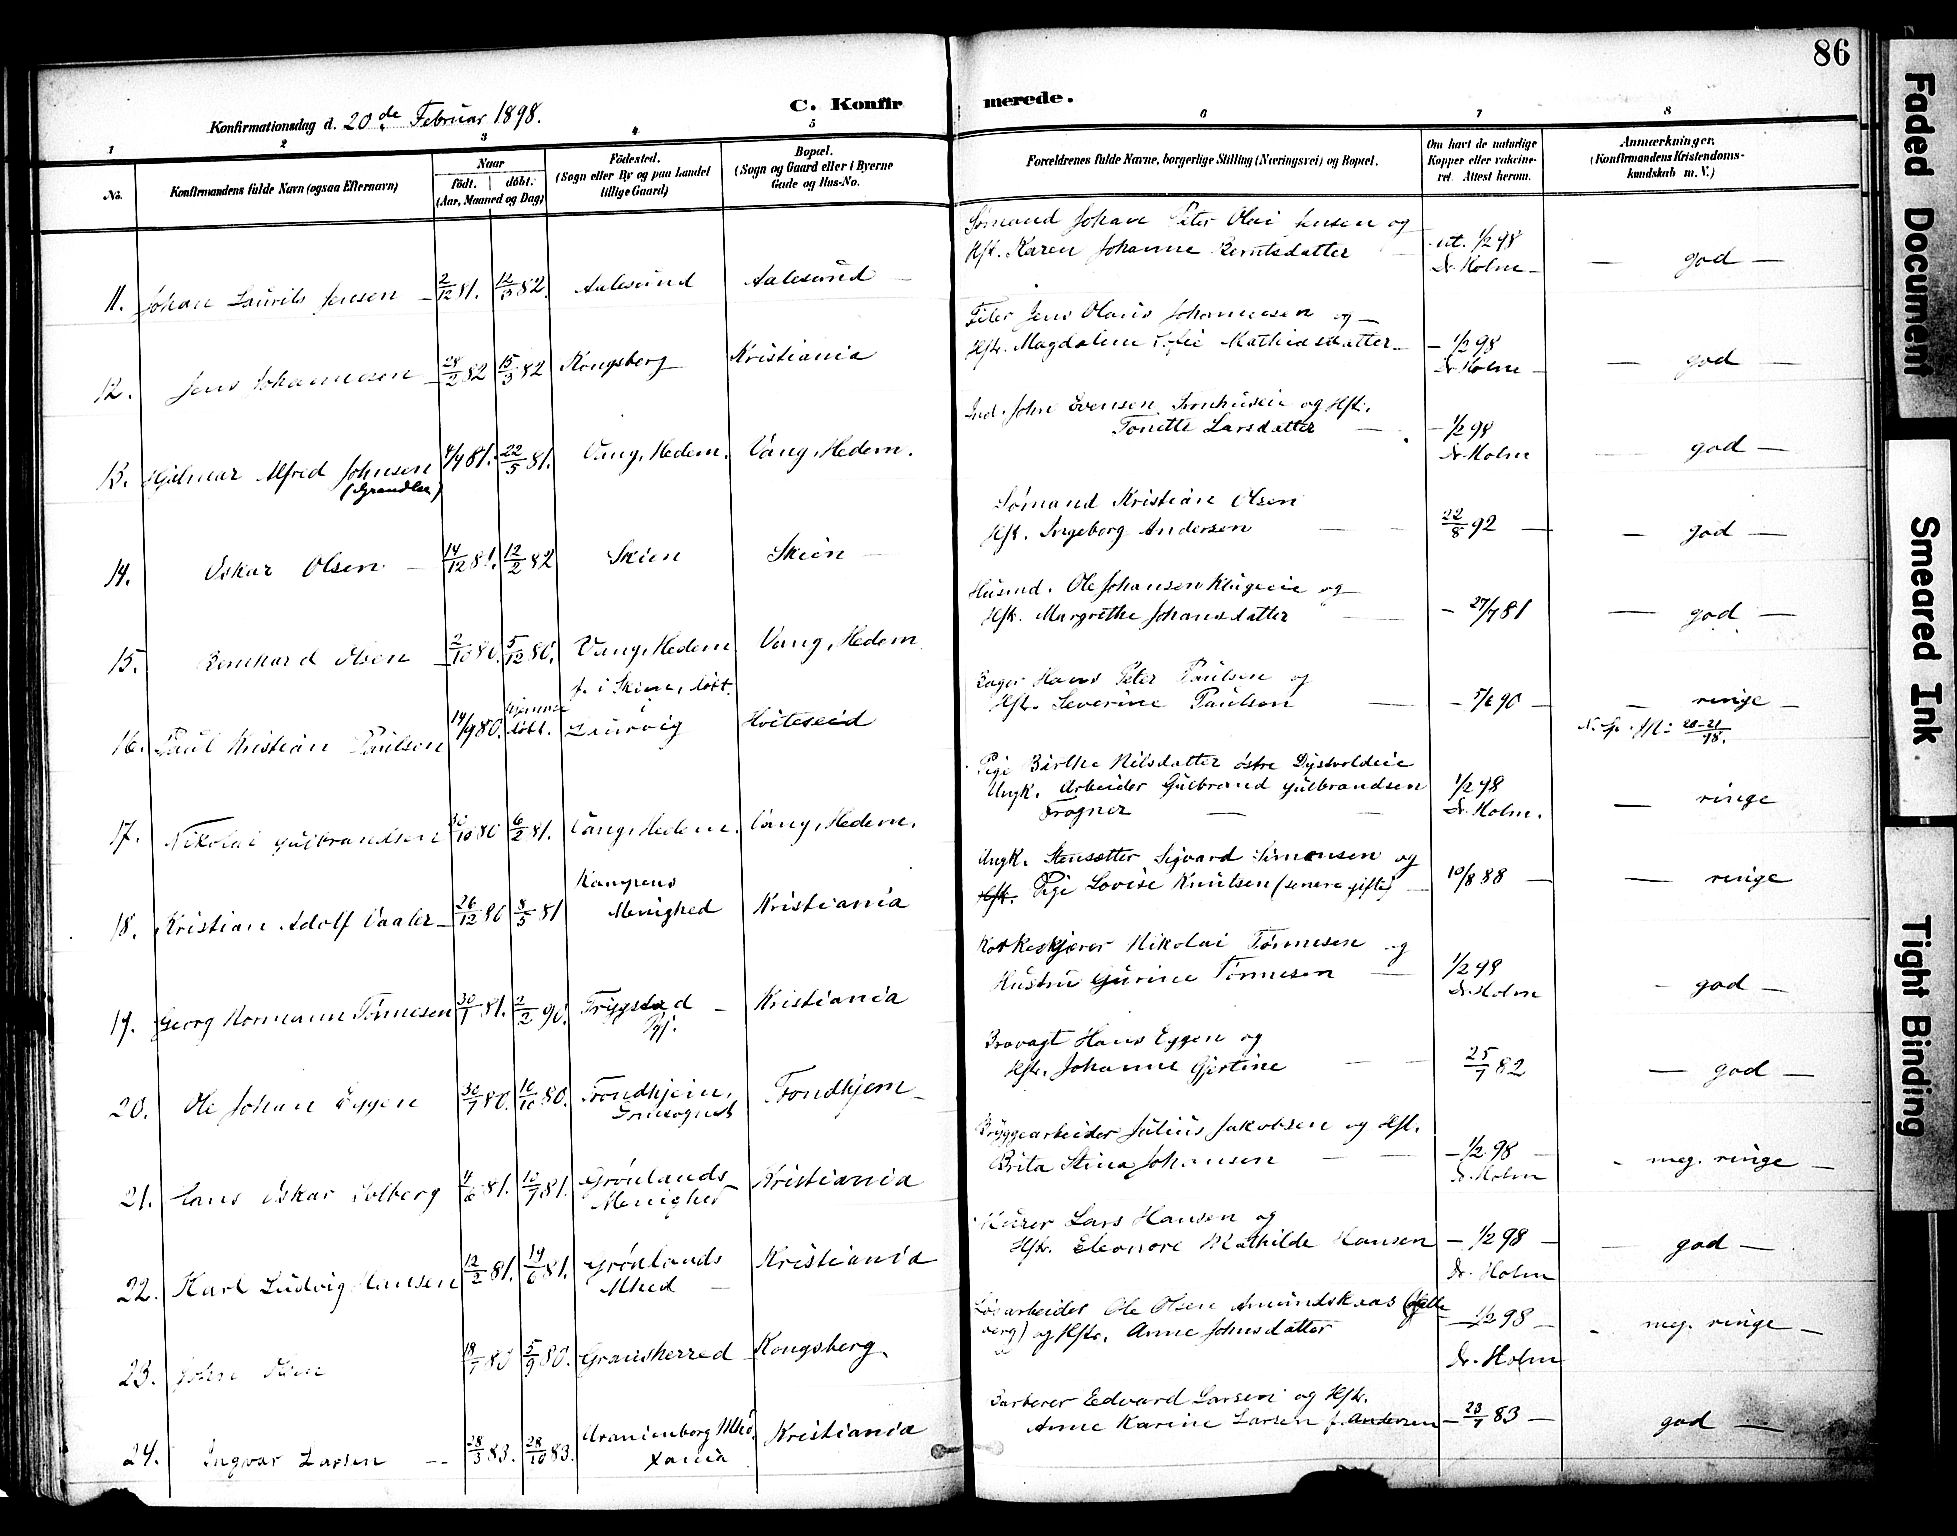 86
C. Konfirmerede.
Konfirmationsdag d. 20de Februar 1898.
1 2 3 4 5 6 7 8
No. Konfirmandens fulde Navn (ogsaa Efternavn)
Naar født. døbt. (Aar, Maaned og Dag)
Fødested. (Sogn eller By og paa Landet tillige Gaard)
Bopæl. (Sogn og Gaard eller i Byerne Gade og Hus-No.
Forældrenes fulde Navne, borgerlige Stilling (Næringsvei) og Bopæl.
Om havt de naturlige Kopper eller vakcineret. Attest herom.
Anmærkninger. (Konfirmandens Kristendomskundskab m. V.)
11. Johan Laurits Jensen 2/12 81. 12/3 82. Aalesund Aalesund
Sømand Johan Peter Olai Jensen og
Hst. Karen Johanne Berntsdatter
1/2 98
Dr. Holm
god
12. Jens Johannesen 24/2 82 15/3 82 Kongsberg Kristiania
Jens Olaus Johannesen og
Hstr. Magdalene Sofie Mathiasdatter
1/2 98
Dr. Holm
god
13. Hjalmar Alfred Johnsen 4/4 81. 22/5 81. Vang, Hedem. Vang, Hedem.
Ind. John Evensen og Hst.
Tonette Larsdatter
1/2 98
Dr. Holm
god
14. Oskar Olsen 14/12 81. 12/2 82 Skien Skien
Sømand Kristian Olsen
Hst. Ingeborg Andersen
22/8 92
god
15. Bernhard Olsen 2/10 80. 5/12 80. Vang, Hedem Vang, Hedem
Husmd. Ole Johansen og
Hst. Margrethe Johansdatter
27/7 81
god
16. Paul Kristian Paulsen 14/9 80. hjemme døbt. f. i Skien, døbt i Laurvig Hviteseid
Bager Hans Peter Paulsen og
Hst. Severine Paulsen
5/6 90
ringe
17. Nikolai Gulbrandsen 30/10 80 6/2 81. Vang, Hedem. Vang, Hedem.
Pige Birthe Nilsdatter østre Dystvoldeie
Ungk. Arbeider Gulbrand Gulbrandsen
Frogner
1/2 98
Dr. Holm.
ringe
18. Kristian Adolf Vaaler 26/12 80 8/5 81 Kampens Menighed Kristiania
Ungk. Stensætter Sigvard Simonsen og
Hst. Pige Lovise Knutsen (senere gifte)
10/8 88
ringe
19. Georg Normann Tønnesen 30/1 81. 2/2 90. Trygstad Kristiania
Kokkeskjører Nikolai Tønnesen og
Hustru Gurine Tønnesen
1/2 98
Dr. Holm
god
20. Ole Johan Eggen 30/7 80. 10/10 80. Trondhjem, Trondhjem
Brovagt Hans Eggen og
Hstr. Johanne Gjertine
25/7 82
god
21. Hans Oskar Solberg 4/6 81. 12/7 81. Grønlands Menighed Kristiania
Bryggearbeider Julius Jakobsen og Hst.
Brita Stina Johansen
1/2 98
Dr. Holm
meg. ringe
22. Karl Ludvig Hansen 12/2 81. 19/6 81. Grønlands Mhed Kristiania
Murer Lars Hansen og
Hstr. Eleonore Mathilde Hansen
1/2 98
Dr. Holm
god
23. John Olsen 18/7 80 5/9 80. Gransherred Kongsberg.
Ole Olsen Amundskaas
og Hstr. Anne Johnsdatter
1/2 98
Dr. Holm
meg. ringe
24. Ingvar Larsen 28/3 83. 28/10 83. Uranienborg Mhd. Xania Kristiania
Barberer Edvard Larsen og Hstr.
Anne Karine Larsen f. Andersen
23/7 83
god
Faded Document
Smeared Ink.
Tight Binding